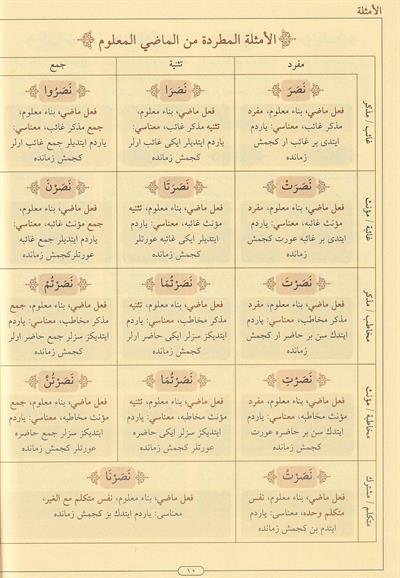 الأمثلة
الأمثلة المطردة من الماضي المعلوم
مفرد
تثنية
جمع
غائب / مذكر
نَصَرَ
فعل ماضي، بناء معلوم، مفرد
مذكر غائب، معناسي: ياردم
ايتدى بر غائب ار كجمش
زمانده
نَصَرَا
فعل ماضي، بناء معلوم،
تثنيه مذكر غائب، معناسي:
ياردم ايتديلر ايكى غائب ارلر
كجمش زمانده
نَصَرُوا
فعل ماضي، بناء معلوم،
جمع مذكر غائب، معناسي:
ياردم ايتديلر جمع غائب ارلر
كجمش زمانده
غائبة / مؤنث
نَصَرَتْ
فعل ماضي، بناء معلوم، مفرد
مؤنث غائبه، معناسي: ياردم
ايتدى بر غائبه عورت كجمش
زمانده
نَصَرَتَا
فعل ماضي، بناء معلوم، تثنيه
مؤنث غائبه، معناسي: ياردم
ايتديلر ايكى غائبه عورتلر
كجمش زمانده
نَصَرْنَ
فعل ماضي، بناء معلوم،
جمع مؤنث غائبه، معناسي:
ياردم ايتديلر جمع غائبه
عورتلر كجمش زمانده
مخاطب / مذكر
نَصَرْتَ
فعل ماضي، بناء معلوم، مفرد
مذكر مخاطب، معناسي: ياردم
ايتدك سن بر حاضر ار كجمش
زمانده
نَصَرْتُمَا
فعل ماضي، بناء معلوم، تثنيه
مذكر مخاطب، معناسي: ياردم
ايتديكز سزلر ايكى حاضر ارلر
كجمش زمانده
نَصَرْتُمْ
فعل ماضي، بناء معلوم، جمع
مذكر مخاطب، معناسي: ياردم
ايتديكز سزلر جمع حاضر ارلر
كجمش زمانده
مخاطبة / مؤنث
نَصَرْتِ
فعل ماضي، بناء معلوم، مفرد
مؤنث مخاطبه، معناسي: ياردم
ايتدك سن بر حاضره عورت
كجمش زمانده
نَصَرْتُمَا
فعل ماضي، بناء معلوم، تثنيه
مؤنث مخاطبه، معناسي: ياردم
ايتديكز سزلر ايكى حاضره
عورتلر كجمش زمانده
نَصَرْتُنَّ
فعل ماضي، بناء معلوم، جمع
مؤنث مخاطبه، معناسي: ياردم
ايتديكز سزلر جمع حاضره
عورتلر كجمش زمانده
متكلم / مشترك
نَصَرْتُ
فعل ماضي، بناء معلوم، نفس
متكلم وحده، معناسي: ياردم
ايتدم بن كجمش زمانده
نَصَرْنَا
فعل ماضي، بناء معلوم، نفس متكلم مع الغير،
معناسي: ياردم ايتدك بز كجمش زمانده
١٠